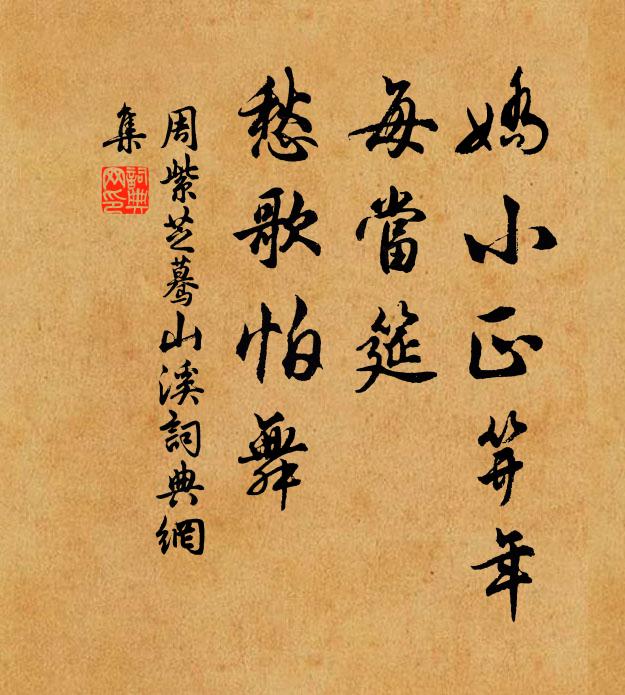 嬌小正笄年
每當筵
愁歌怕舞
周紫芝驀山溪詞典網
集
詞典網印